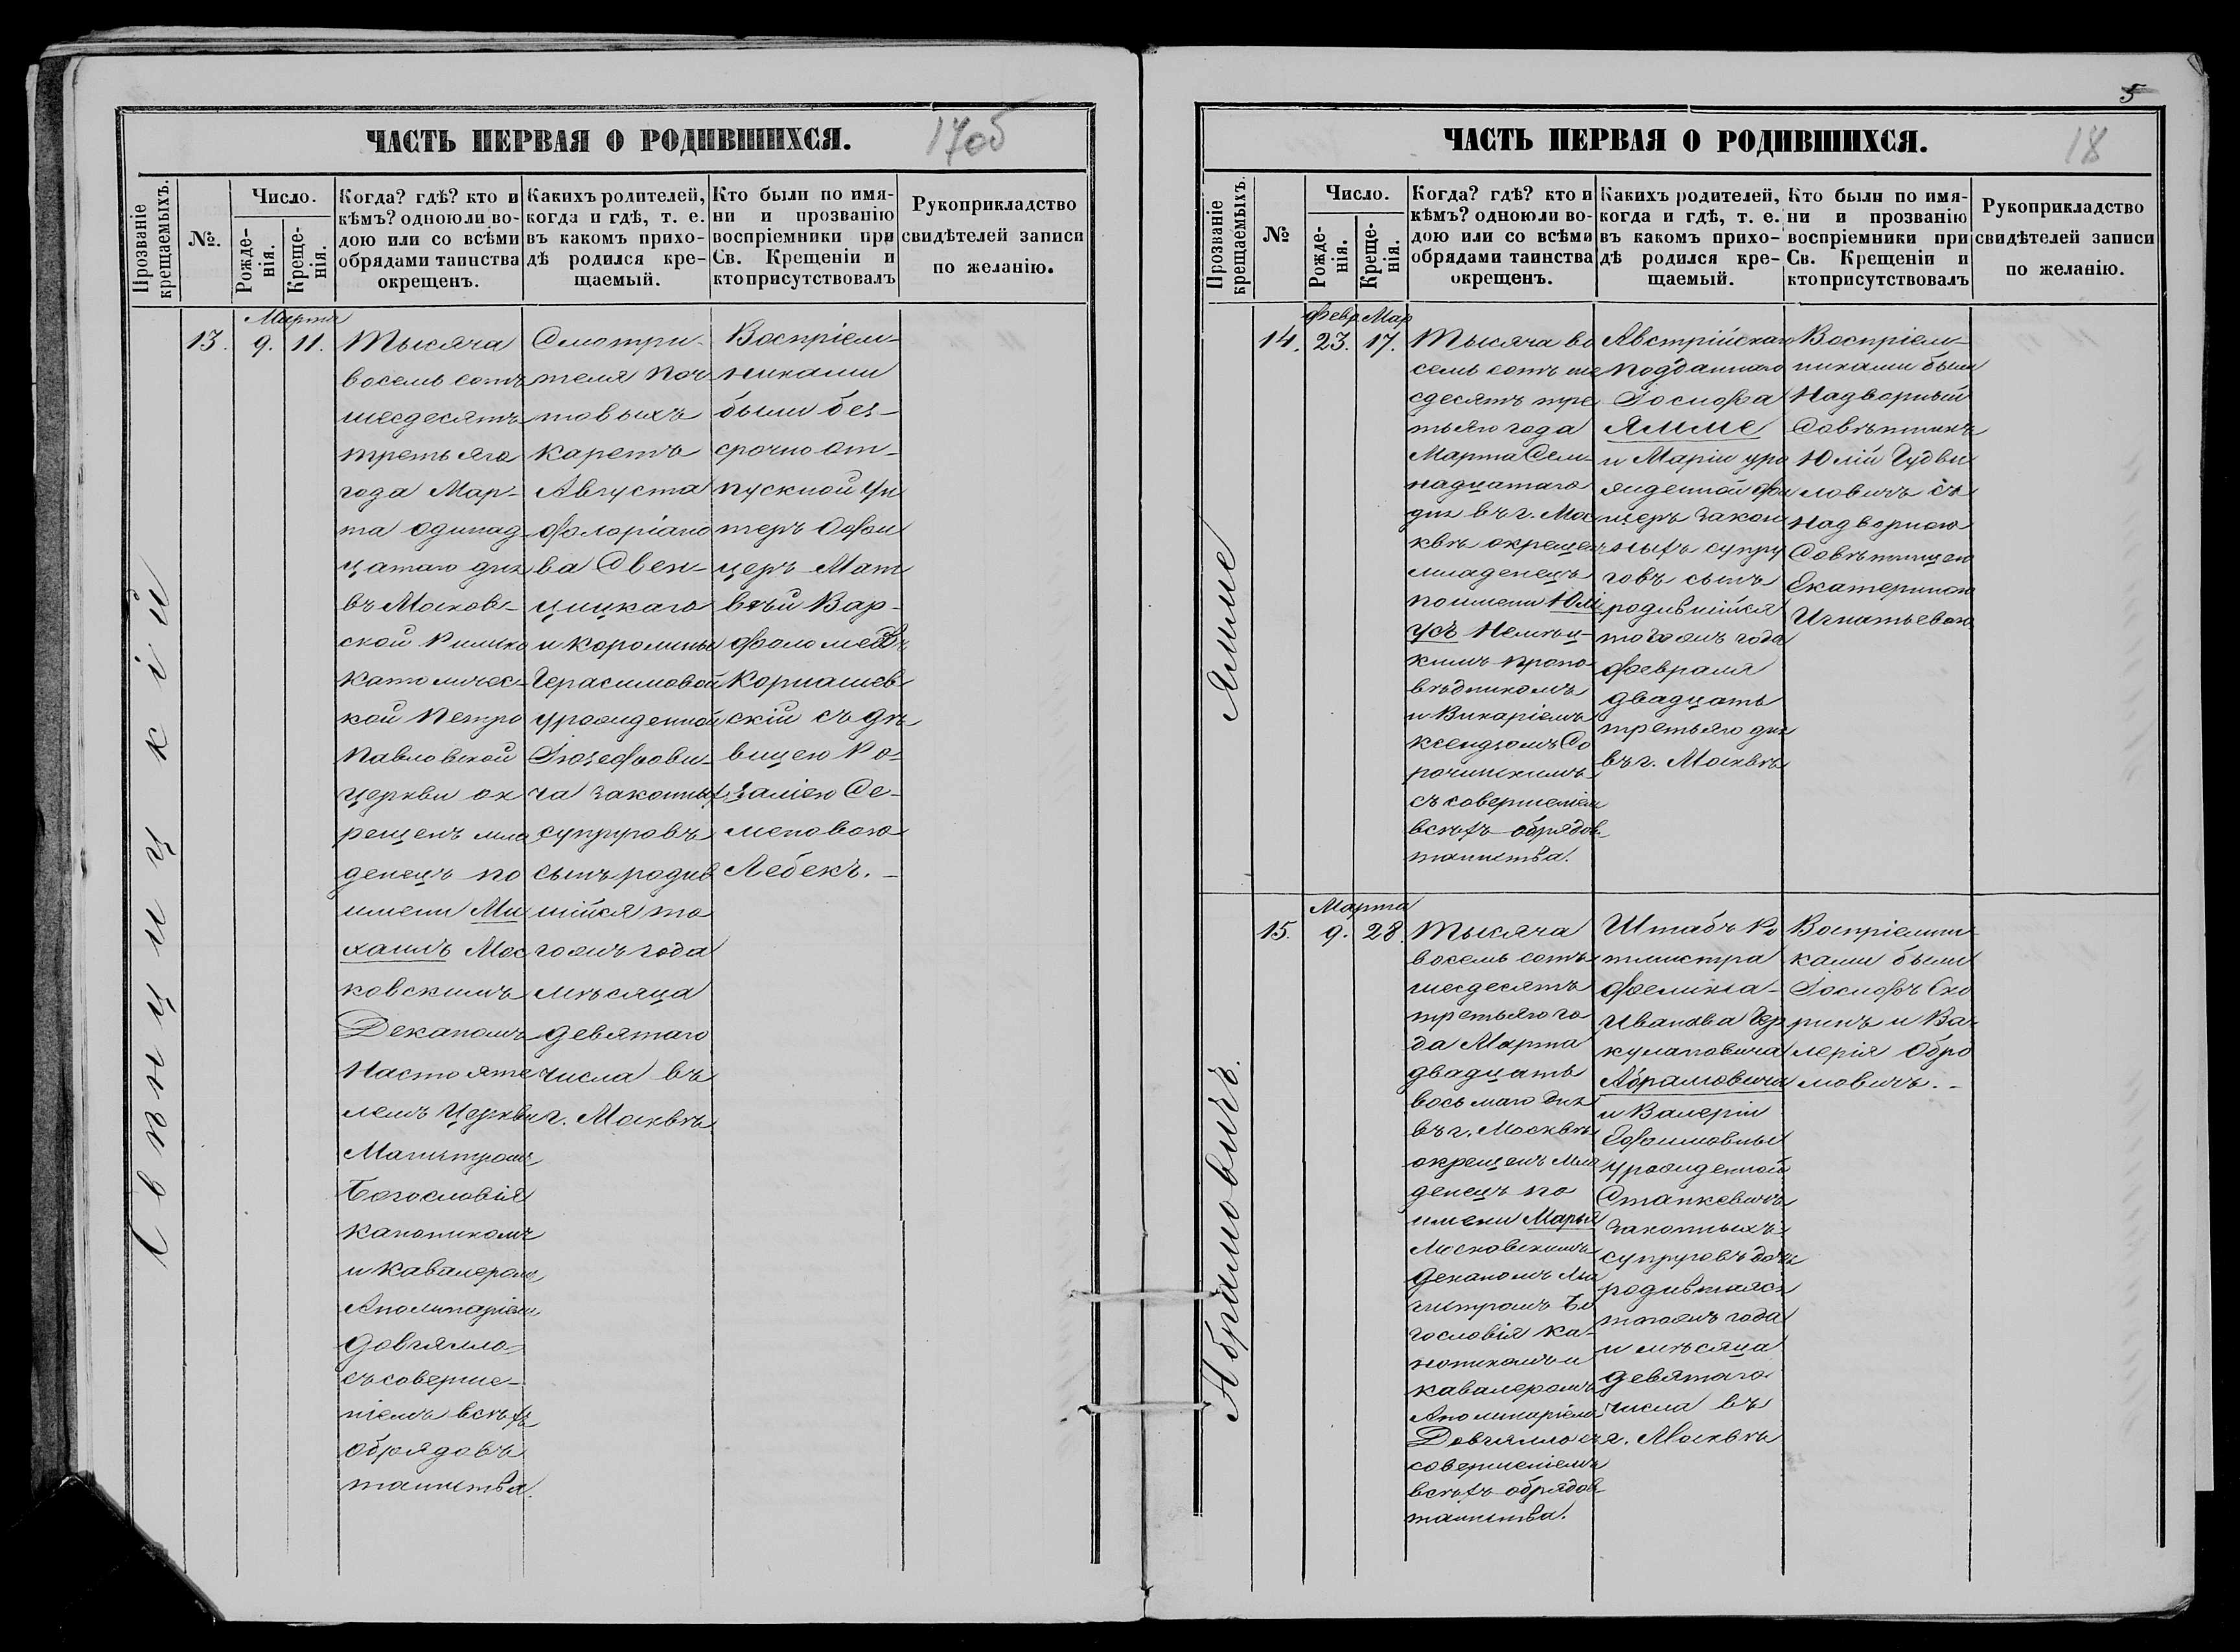 ЧАСТЬ ПЕРВАЯ О РОДИВШИХСЯ.
17об
Прозваніе крещаемыхъ.
№.
Число.
Рожде-
нія.
Креще-
нія.
Когда? гдѣ? кто и
кѣмъ? одноюли во-
дою или со всѣми
обрядами таинства
окрещенъ.
Какихъ родителей,
когда и гдѣ, т. е.
въ какомъ прихо-
дѣ родился кре-
щаемый.
Кто были по имя-
ни и прозванію
воспріемники при
Св. Крещеніи и
ктоприсутствовалъ
Рукоприкладство
свидѣтелей записи
по желанію.
Свѣнцицкій
13.
Марта
9. 11.
Тысяча
восемь сотъ
шесдесятъ
третьяго
года Мар-
та одинад
цатаго дня
въ Москов-
ской Римско
Католичес-
кой Петро
Павловской
церкви ок
рещенъ мла
денецъ по
имени Ми
хаилъ Мос
ковскимъ
Деканомъ
Настояте
лемъ Церкви
Магистромъ
Богословія
Каноникомъ
и Кавалеромъ
Аполинаріемъ
Довгялло
съ соверше-
ніемъ всѣхъ
обрядовъ
таинства.
Смотри-
теля Поч
товыхъ
каретъ
Августа
Флоріано
ва Свен-
цицкаго
и Каролины
Герасимовой
урожденной
Іозефови-
ча законныхъ
супруговъ
сынъ родив
шійся то
гожъ года
мѣсяца
девятаго
числа въ
г. Москвѣ
Воспріем-
никами
были без-
срочно от-
пускной Ун
теръ Офи
церъ Мат
вѣй Вар-
фоломеевъ
Корнашев
скій съ дѣ
вицею Ро-
заліею Се-
меновою
Лебекъ. -
5
ЧАСТЬ ПЕРВАЯ О РОДИВШИХСЯ.
18
Прозваніе крещаемыхъ.
№
Число.
Рожде-
нія.
Креще-
нія.
Когда? гдѣ? кто и
кѣмъ? одноюли во-
дою или со всѣми
обрядами таинства
окрещенъ.
Какихъ родителей,
когда и гдѣ, т. е.
въ какомъ прихо-
дѣ родился кре-
щаемый.
Кто были по имя-
ни и прозванію
воспріемники при
Св. Крещеніи и
ктоприсутствовалъ
Рукоприкладство
свидѣтелей записи
по желанію.
Ямме
14.
Февр Мар
23. 17.
Тысяча во
семь сотъ ше
сдесятъ тре
тьяго года
Марта Сем-
надцатаго
дня въ г. Мос
квѣ окрещенъ
младенецъ
по имени Юлі
усъ Немец-
кимъ пропо-
вѣдникомъ
и Викаріемъ
ксендзомъ Со
рочинскимъ
съ совершеніемъ
всѣхъ обрядов.
таинства.
Австрійскаго
подданнаго
Іосифа
Ямме
и Маріи уро
жденной
церъ закон
ныхъ супру
говъ сынъ
родившійся
тогожъ года
февраля
двадцать
третьяго дня
въ г. Москвѣ
Воспріем-
никами были
Надворный
Совѣтникъ
Юлій Гудви
ловичъ съ
Надворною
Совѣтницею
Екатериною
Игнатьевою
Абрамовичъ.
15.
Марта
9. 28.
Тысяча
восемь сотъ
шесдесятъ
третьяго го
да Марта
двадцать
восьмаго дня
въ г. Москвѣ
окрещенъ мла
денецъ по
имени Марья
Московскимъ
Деканомъ Ма
гистромъ Бо
гословія Ка-
ноникомъ и
кавалеромъ
Аполинаріемъ
Довгялло съ
совершеніемъ
всѣхъ обрядов
таинства.
Штабъ Ро
тмистра
Феликса-
Иванова Гер
кулановича
Абрамовича
и Валеріи
Ефимовны
урожденной
Станкевичъ
законныхъ
супруговъ дочь
родившаяся
тогожъ года
и мѣсяца
девятаго
числа въ
г. Москвѣ
Воспріемни-
ками были
Іосифъ Ско
ринъ и Ва-
лерія Обро
мовичъ. -